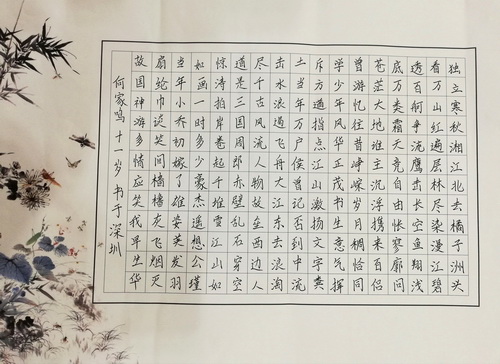 独立寒秋湘江北去橘子洲头
看万山红遍层林尽染漫江碧
透百舸争流鹰击长空鱼翔浅
底万类霜天竞自由怅寥廓问
苍茫大地谁主沉浮携来百侣
曾游忆往昔峥嵘岁月稠恰同
学少年风华正茂书生意气挥
斥方遒指点江山激扬文字粪
土当年万户侯曾记否到中流
击水浪遏飞舟大江东去浪淘
尽千古风流人物故垒西边人
道是三国周郎赤壁乱石穿空
惊涛拍岸卷起千堆雪江山如
如画一时多少豪杰遥想公瑾
当年小乔初嫁了雄姿英发羽
扇纶巾谈笑间樯橹灰飞烟灭
故国神游多情应笑我早生华
何家鸣十一岁书于深圳